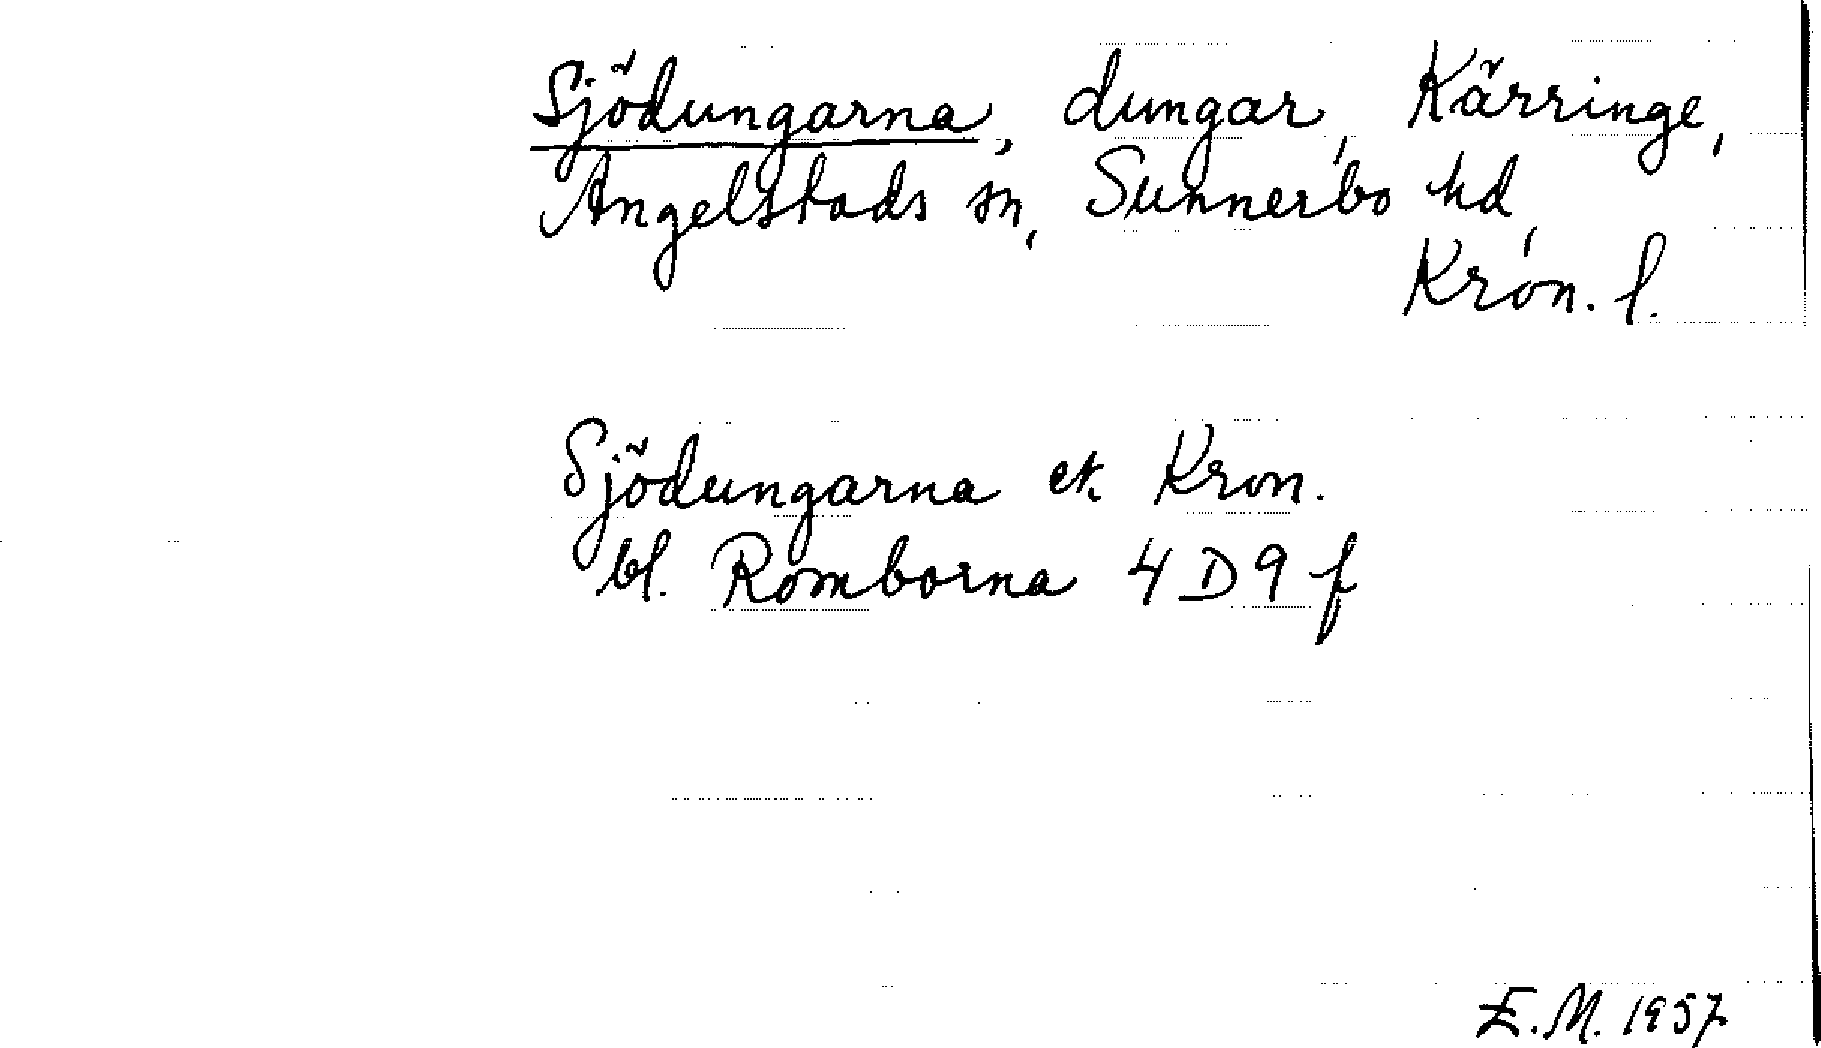 Sjödungarna, dungar, Kärringe,
Angelstads sn, Sunnerbo hd,
Kron. l.
Sjödungarna ek. Kron.
bl. Romborna 4 D 9 f
E.M. 1957